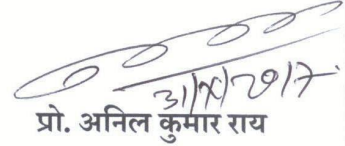 31/X/2017
प्रो. अनिल कुमार राय